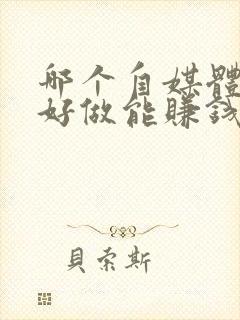 哪个自媒體
好做能賺錢
貝索斯